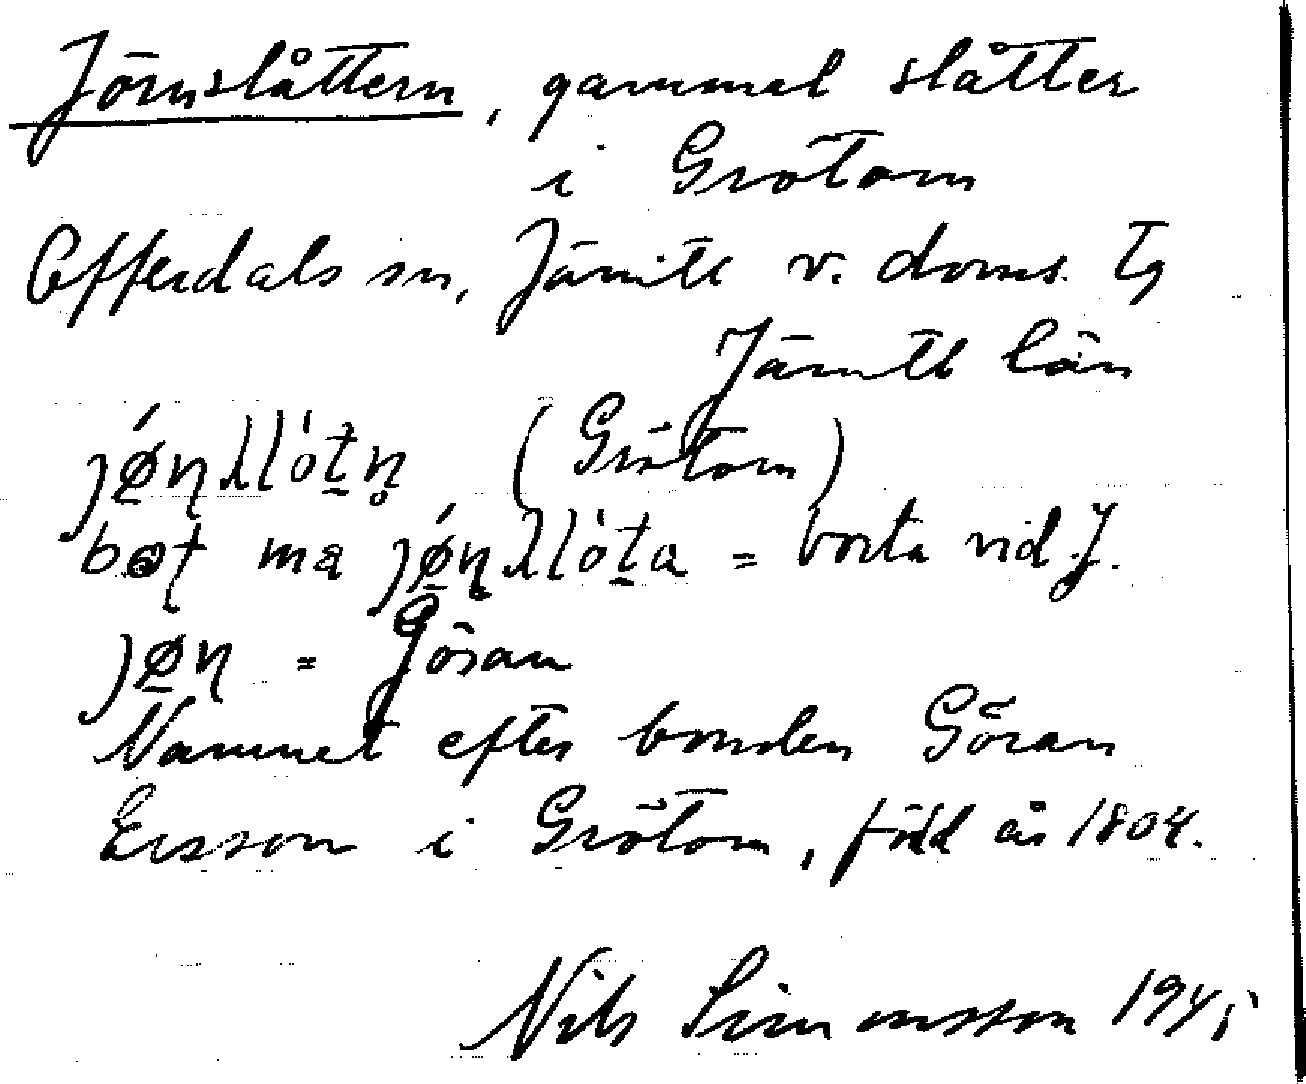 Jörnslåttern, gammal slåtter
i Grötom
Offerdals sn, Jämtl v. doms. tg
Jämtl län
(Grötom)
= borta vid J.
= Göran
Namnet efter bonden Göran
Ersson i Grötom, född år 1804.
Nils Simonsson 1945